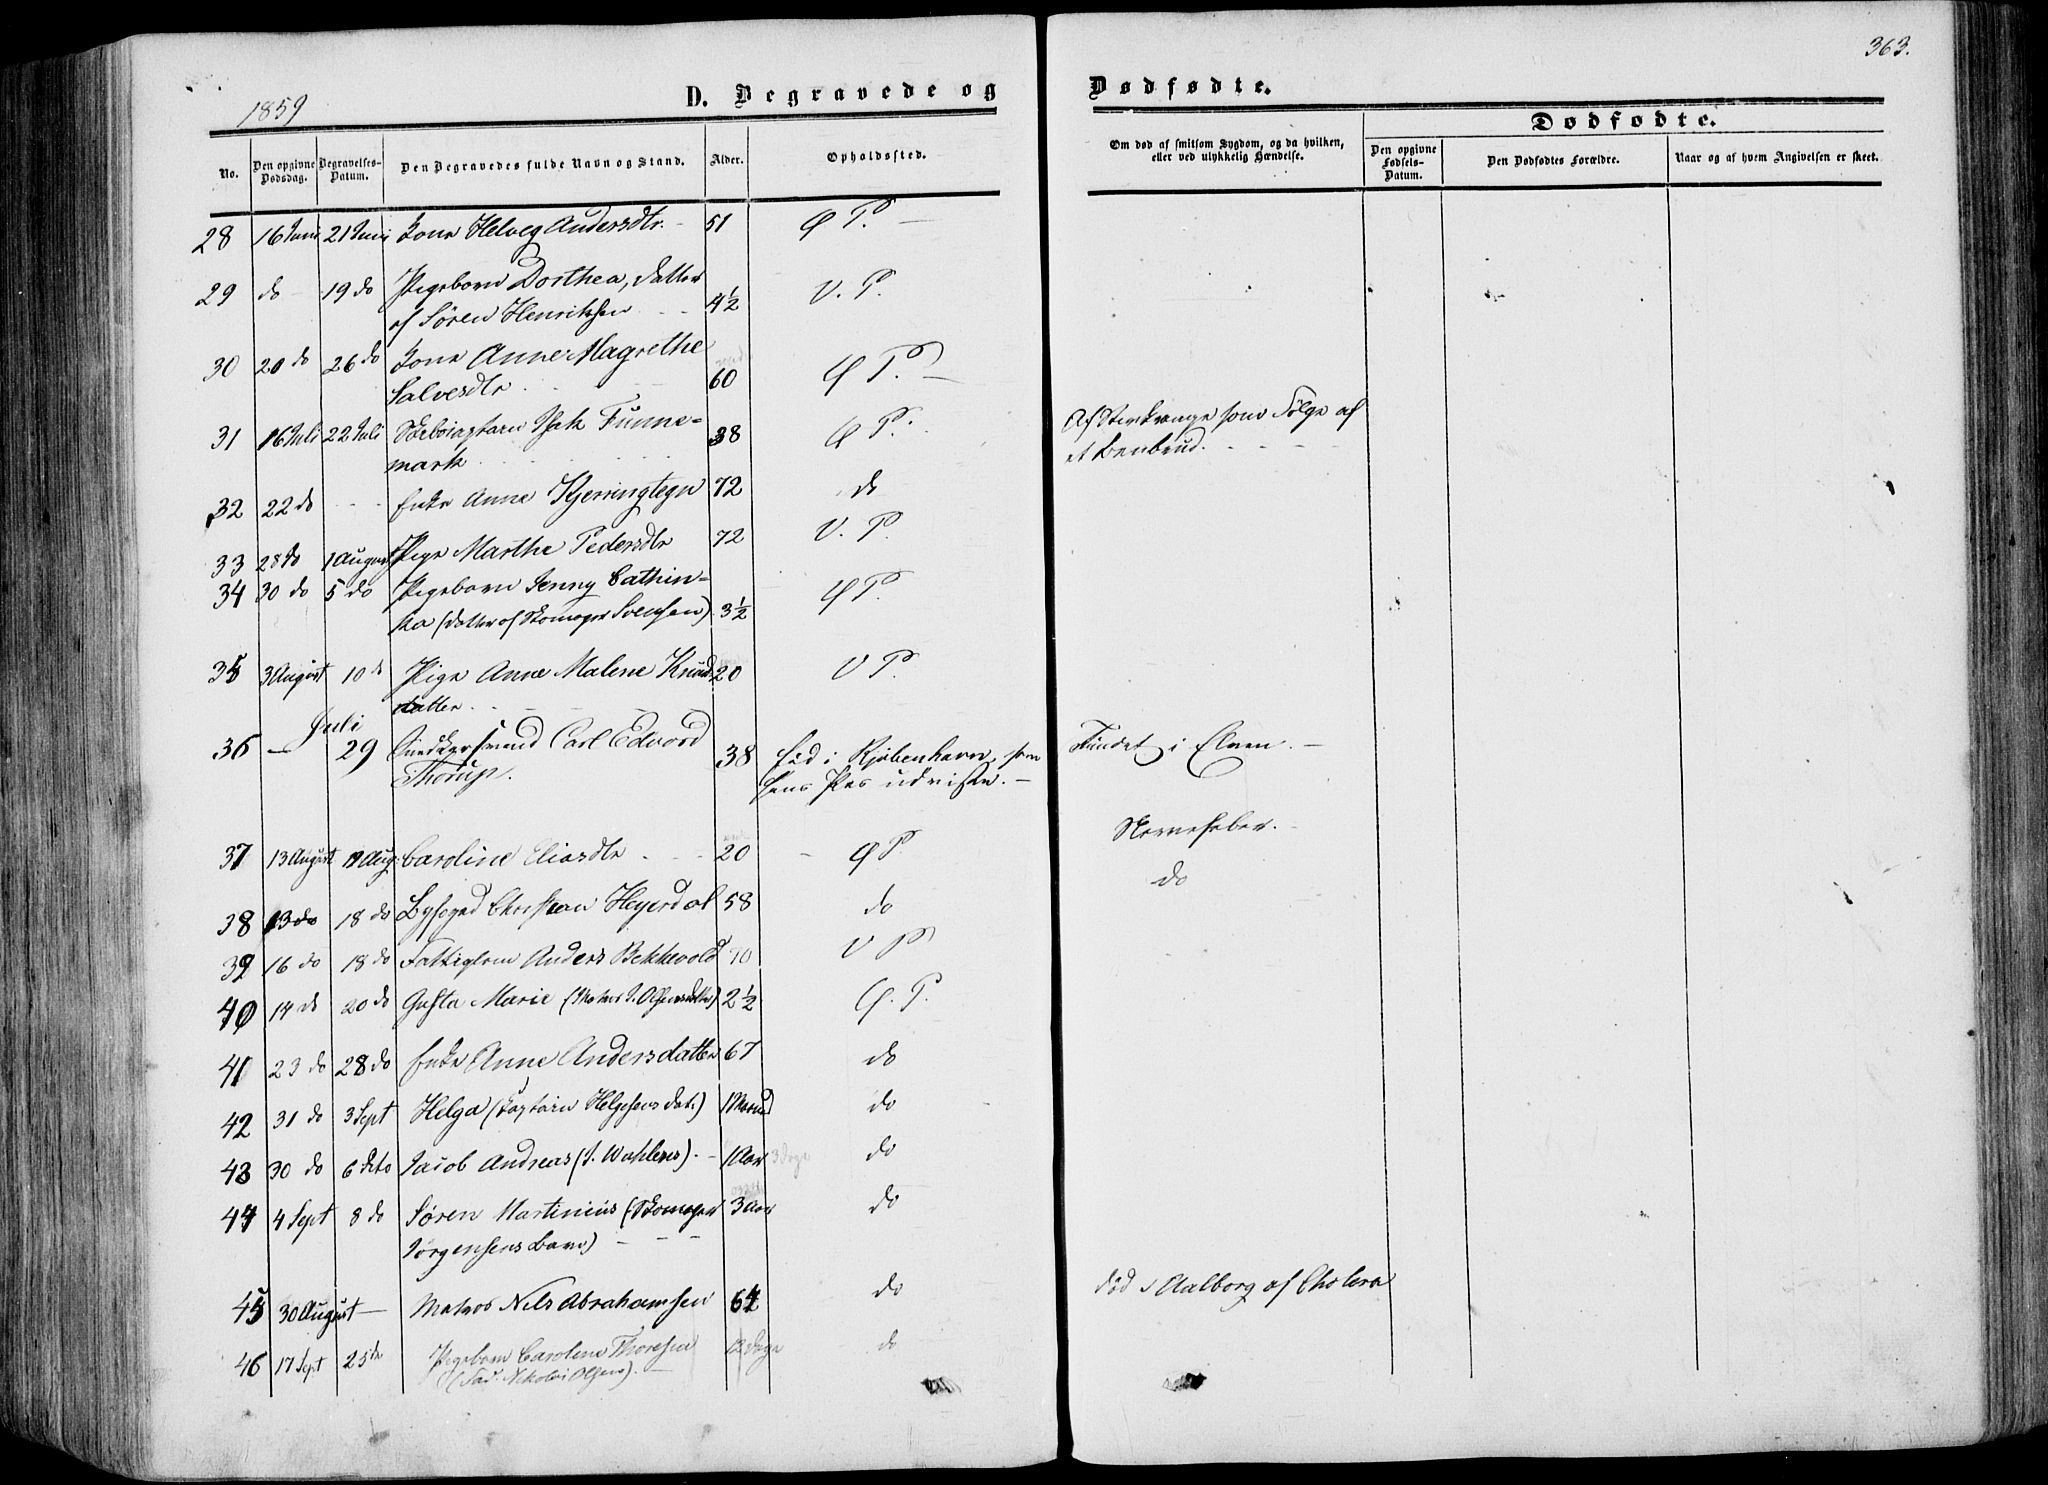 363.
1859
D. Begravede og
Dødfødte.
Dødfødte.
No.
Den opgivne Dødsdag.
Begravelses-Datum.
Den Begravedes fulde Navn og Stand.
Alder.
Opholdssted.
Om død af smitsom Sygdom, og da hvilken, eller ved ulykkelig Hændelse.
Den opgivne Fødsels-Datum.
Den Dødfødtes Forældre.
Naar og af hvem Angivelsen er skeet.
28 16 Juni 21 Juni Kone Helveg Andersdtr. - 51 Ø P. -
29 do - 19 do Pigebarn Dorthea, Datter
af Søren Henriksen 4½ V. P.
30 20 do 26 do Kone Anne Magrethe
Salvesdtr 60 Ø P. -
31 16 Juli 22 Juli Isak Funne=
mark 38 Ø P. som Følge af
et Benbrud.
32 22 do Enke Anne Kjerringtegn 72 do
33 28 do 1 August Pige Marthe Pedersdtr 72 V. P.
34 30 do 5 do Pigebarn Jenny Cathin=
ka (Datter af Skomager Svensen) 3½ Ø P.
35 3 August 10 do Pige Anne Malene Knuds
datter 20 V P.
36 - Juli 29 Snedkersvend Carl Edvard
Thorup. 38 fød i Kjøbenhavn, som
hans Pas udviste. - Fundet i Elven. -
37 13 August 19 Aug. Caroline Eliasdtr 20 Ø P Nervefeber. -
38 13 do 18 do Byfoged Christian Heyerdal 58 do do
39 16 do 18 do Fattiglem Anders Bekkevold 70 V P
40 14 do 20 do Gusta Marie (Matros J. Olsens datter) 2½ Ø. P.
41 23 do 28 do Enke Anne Andersdatter 67 do
42 31 do 3 Sept Helga ( Helgesens Dat.) 1 Maaned do
43 30 do 6 dito Jacob Andreas (J. Wahlens). - 1 Aar 3 Dage do
44 4 Sept 8 do Søren Martinius (Skomager
Jørgensens Barn) 3 Aar do
45 30 August - Matros Nils Abrahamsen 64 do død i Aalborg af Cholera
46 17 Sept 25 do Pigebarn Caroline Thoresen
(Fad. Nikolai Olsen). - 12 Dage do